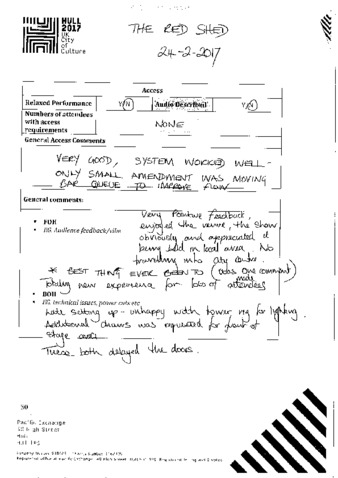 HULL
2017
UK
City
of
Culture
THE RED SHED
24-2-2017
Access
Relaxed Performance Y/N Audio Described Y/N
Numbers of attendees
with access
requirements
NONE
General Access Comments
VERY GOOD, SYSTEM WORKED WELL -
ONLY SMALL AMENDMENT WAS MOVING
BAR QUEUE TO IMPROVE FLOW
General comments:
• FOH
• EG. Audience feedback/vibe
Very Positive feedback,
enjoyed the venue, the show
obviously and appreciated it
being held in local area. No
travelling into city centre.
* BEST THING EVER BEEN TO (was one comment made)
Totally new experience for lots of attendees
• BOH
• EG. technical issues, power cuts etc
Late setting up - unhappy with tower rig for lighting.
Additional chairs was requested for front of
stage
These both delayed the doors.
Pacific Exchange
40 High Street
Hull
HU1 1PS